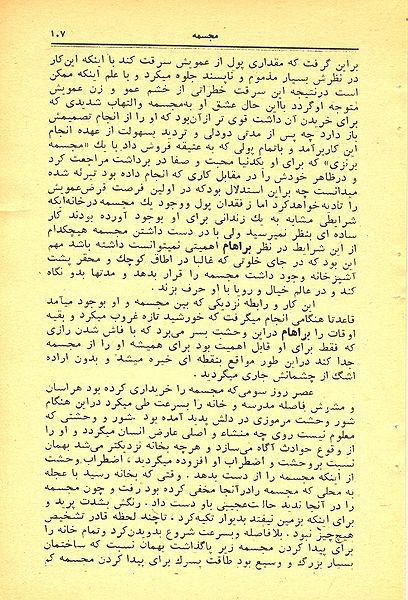 مجسمه ۱۰۷
براین گرفت که مقداری پول از عمویش سرقت کند با اینکه این‌کار
در نظرش بسیار مذموم و ناپسند جلوه میکرد و با علم اینکه ممکن
است درنتیجه این سرقت خطراتی از خشم عمو و زن عمویش
متوجه اوگردد بااین حال عشق او به‌مجسمه والتهاب شدیدی که
برای خریدن آن داشت قوی تر از آن‌بود که او را از انجام تصمیمش
باز دارد چه پس از مدتی دودلی و تردید بسهولت از عهده انجام
این کاربرآمد و باتمام پولی که به عتیقه فروش داد با یك «مجسمه
برنزی» که برای او یکدنیا محبت و صفا در برداشت مراجعت کرد
و درظاهر خودش را در مقابل کاری که انجام داده بود تبرئه شده
میدانست چه براین استدلال بودکه در اولین فرصت قرض‌عمویش
را تادیه‌خواهدکرد اما ز فقدان پول ووجود یك مجسمه درخانه‌ایکه
شرایطی مشابه به یك زندانی برای او بوجود آورده بودند کار
ساده ای بنظر نمیرسید ولی با در دست داشتن مجسمه هیچکدام
از این شرایط در نظر براهام اهمیتی نمیتوانست داشته باشد مهم
این بود که در جای خلوتی که غالبا در اطاق کوچك و محقر پشت
آشپزخانه وجود داشت مجسمه را قرار بدهد و مدتها بدو نگاه
کند و در عالم خیال و رویا با او حرف بزند .
این کار و رابطه نزدیکی که بین مجسمه و او بوجود میآمد
قاعدتا هنگامی انجام میگرفت که خورشید تازه غروب میکرد و بقیه
اوقات را براهام دراین وحشت بسر می‌برد که با فاش شدن رازی
که فقط برای او قابل اهمیت بود برای همیشه او را از مجسمه
جدا کند دراین طور مواقع بنقطه ای خیره میشد و بدون اراده
اشگ از چشمانش جاری میگردید .
عصر روز سومی‌که مجسمه را خریداری کرده بود هراسان
و مشوش فاصله مدرسه و خانه را بسرعت طی میکرد دراین هنگام
شور وحشت مرموزی در دلش پدید آمده بود شور و وحشتی که
معلوم نیست روی چه منشاء و اصلی عارض انسان میگردد و او را
از وقوع حوادث آگاه می‌سازد و هرچه بخانه نزدیکتر می‌شد بهمان
نسبت بروحشت و اضطراب او افزوده میگردید ، اضطراب وحشت
از اینکه مجسمه را از دست بدهد . وقتی که بخانه رسید با عجله
به محلی که مجسمه رادرآنجا مخفی کرده بود رفت و چون مجسمه
را در آنجا ندید حالت‌عجیبی باو دست داد . رنگش بشدت پرید و
برای اینکه بزمین نیفتد بدیوار تکیه‌کرد . تاچند لحظه قادر بتشخیص
هیچ‌چیز نبود . بلافاصله وبسرعت شروع بدویدن‌کرد وتمام خانه را
برای پیدا کردن مجسمه زیر پاگذاشت بهمان نسبت که ساختمان
بسیار بزرگ و وسیع بود طاقت پسرك برای پیدا کردن مجسمه کم